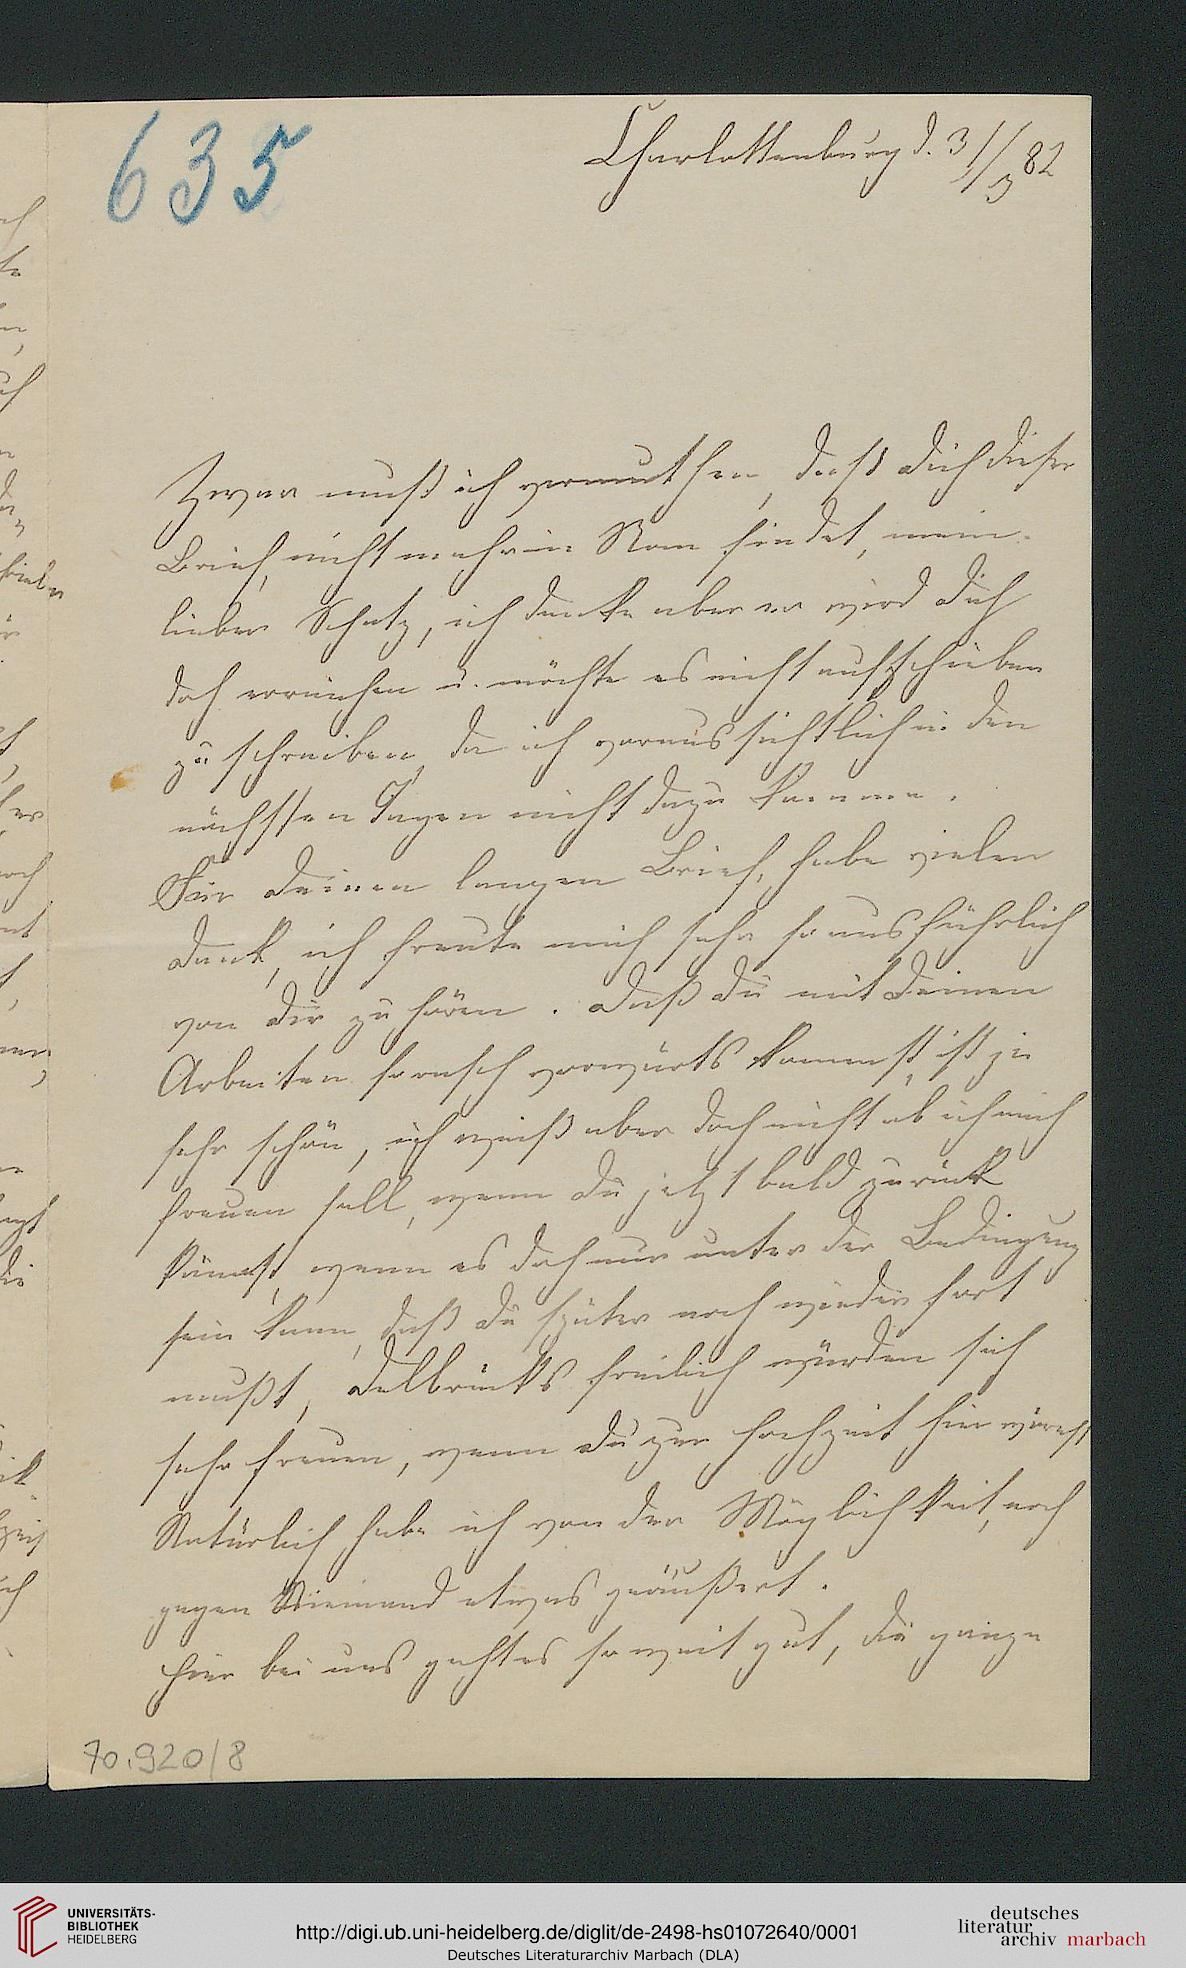 635
Charlottenburg d. 31/3 82
Zwar muß ich vermuthen, daß Dich dieser
Brief nicht mehr in Rom findet, mein
lieber Schatz, ich denke aber er wird Dich
doch erreichen u. möchte es nicht aufschieben
zu schreiben, da ich voraussichtlich in den
nächsten Tagen nicht dazu komme.
Für Deinen langen Brief, habe vielen
Dank, ich freute mich sehr so ausführlich
von Dir zu hören. Daß Du mit Deinen
Arbeiten so rasch vorwärts kommst, ist ja
sehr schön, ich weiß aber doch nicht ob ich mich
freuen soll, wenn Du jetzt bald zurück
kämest, wenn es doch nur unter der Bedingung
sein kann, daß Du später noch wieder fort
mußt, Delbrücks freilich würden sich
sehr freuen, wenn Du zur Hochzeit hier wärest
Natürlich habe ich von der Möglichkeit, noch
gegen Niemand etwas geäußert.
Hier bei uns geht es so weit gut, die ganze
70.920/8
UNIVERSITÄTS-
BIBLIOTHEK
HEIDELBERG
http://digi.ub.uni-heidelberg.de/diglit/de-2498-hs01072640/0001
Deutsches Literaturarchiv Marbach (DLA)
deutsches
literatur
archiv marbach